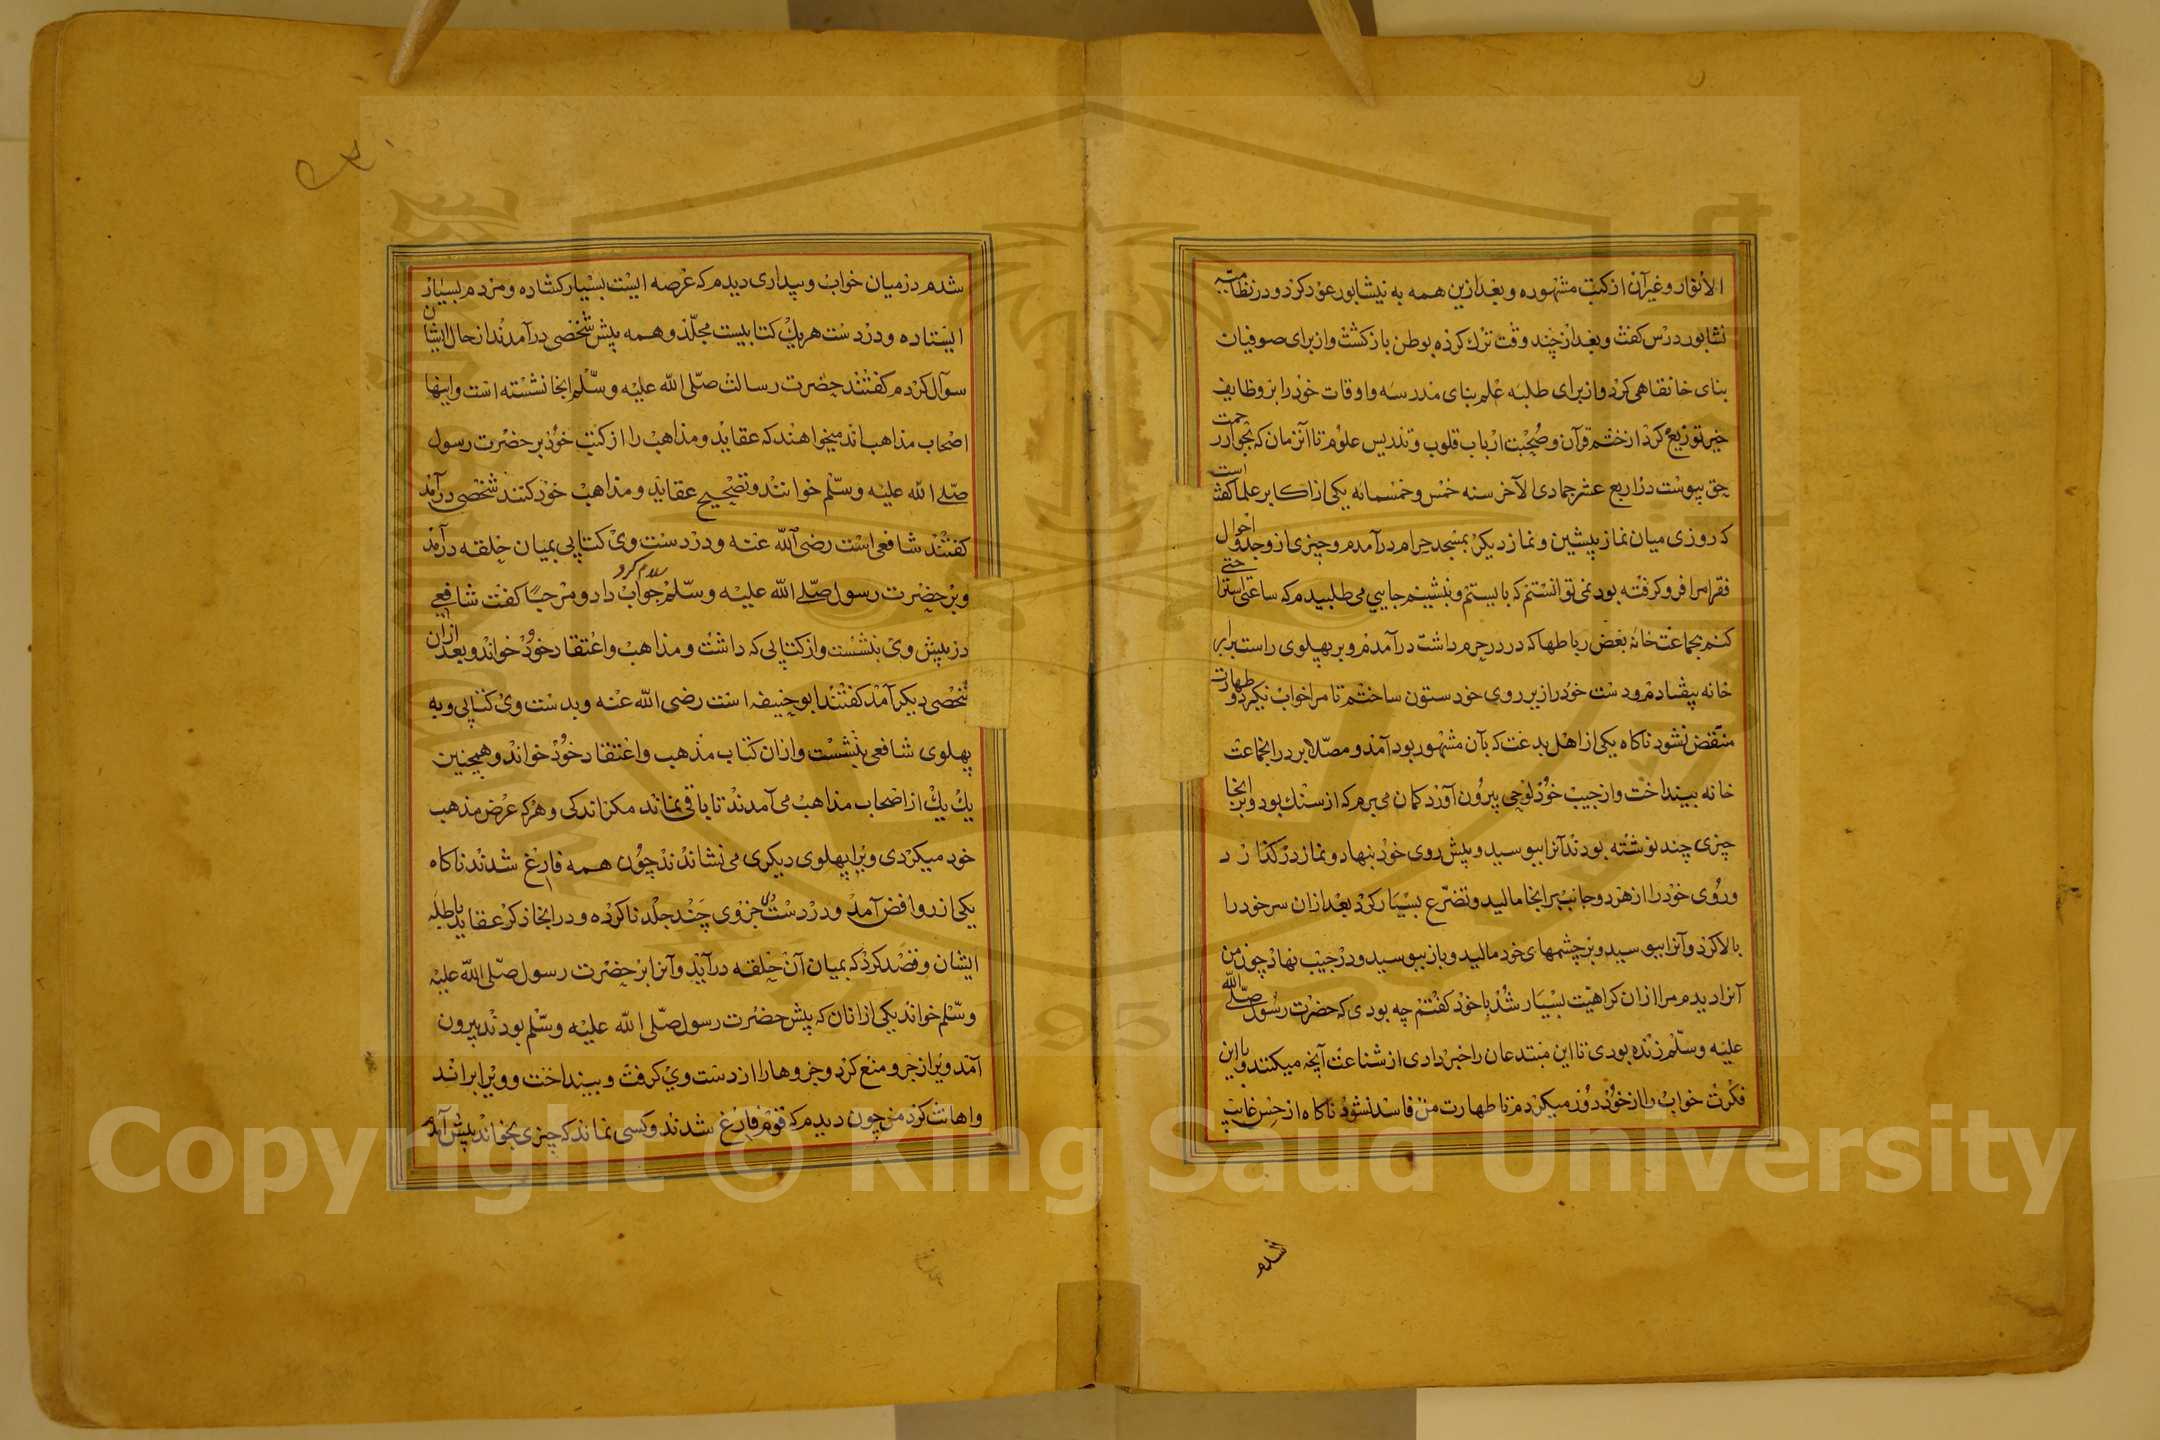 الانوار وغیر آن از کتب مشهوره و بعد ازین همه به نیشابور عود کرد و در نظامیه
نشابور درس کفت و بعد از چند وقت ترك کرده بوطن باز کشت و از برای صوفیان
بنای خانقاهی کرد و از برای طلبه علم بنای مدرسه و اوقات خود را بر وظایف
خیر توزیع کرد از ختم قرآن و صحبت ارباب قلوب و تدریس علوم تا آنزمان که بجوار رحمت
حق پیوست در اربع عشر جمادی الآخر سنه خمس و خمسمائه یکی از اکابر علما کفته است
که روزی میان نماز پیشین و نماز دیکر بمسجد حرام درآمدم و چیزی از وجد و احوال
فقرا مرا فرو کرفته بود نمی توانستم که بایستم و بنشینم جایی می طلبیدم که ساعتی استراحتی
کنم بجماعت خانه بعض رباطها که در در حرم داشت درآمدم و بر پهلوی راست برابر
خانه بیفتادم و دست خود را زیر روی خود ستون ساختم تا مرا خواب نکیرد و طهارت
منتقض نشود ناکاه یکی از اهل بدعت که بآن مشهور بود آمد و مصلا بر در انجماعت
خانه بینداخت و از جیب خود لوحی بیرون آورد کمان می برم که از سنك بود و بر انجا
چیزی چند نوشته بودند آنرا ببوسید و پیش روی خود بنهاد و نماز در کنار د
و روی خود را از هر دو جانب بر انجا مالید و تضرع بسیار کرد بعد ازان سر خود را
بالا کرد و آنرا ببوسید و بر چشمهای خود مالید و باز ببوسید و در جیب نهاد چون من
آنرا دیدم مرا ازان کراهیت بسیار شد با خود کفتم چه بودی که حضرت رسول صلی الله
علیه وسلم زنده بودی تا این مبتدعان را خبر دادی از شناعت آنچه میکنند و با این
فکرت خواب را از خود دور میکردم تا طهارت من فاسد نشود ناکاه از حس غایب
شدم
شدم در میان خواب و بیداری دیدم که عرصه ایست بسیار کشاده و مردم بسیار
ایستاده و در دست هریك کتابیست مجلد و همه پیش شخصی درآمدند از حال ایشان
سوآل کردم کفتند حضرت رسالت صلی الله علیه وسلم انجا نشسته است و اینها
اصحاب مذاهب اند میخواهند که عقاید و مذاهب را از کتب خود بر حضرت رسول
صلی الله علیه وسلم خوانند و تصحیح عقاید و مذاهب خود کنند شخصی درآمد
کفتند شافعی است رضی الله عنه و در دست وی کتابی بمیان حلقه درآمد
و بر حضرت رسول صلی الله علیه وسلم سلام کرد جواب داد و مرحبا کفت شافعی
در پیش وی بنشست و از کتابی که داشت و مذاهب و اعتقاد خود خواند و بعد ازان
شخصی دیکر آمد کفتند ابو حنیفه است رضی الله عنه و بدست وی کتابی و به
پهلوی شافعی بنشست و ازان کتاب مذهب و اعتقاد خود خواند و همچنین
یك یك از اصحاب مذاهب می آمدند تا باقی نماند مکر اندکی و هر که عرض مذهب
خود میکردی ویرا پهلوی دیکری می نشاندند چون همه فارغ شدند ناکاه
یکی از روافض آمد و در دست وی جزوی چند جلد ناکرده و در انجا ذکر عقاید باطله
ایشان و قصد کرد که بمیان آن حلقه درآید و آنرا بر حضرت رسول صلی الله علیه
وسلم خواند یکی از انان که پیش حضرت رسول صلی الله علیه وسلم بودند بیرون
آمد ویرا زجر و منع کرد و جزوها را از دست وی کرفت و بینداخت و ویرا براند
و اهانت کرد من چون دیدم که قوم فارغ شدند و کسی نماند که چیزی بخواند پیش آمدم
Copyright © King Saud University
1957